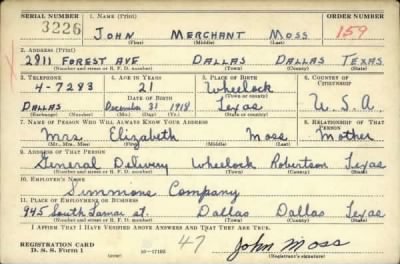 SERIAL NUMBER 1. NAME (Print) ORDER NUMBER
3226 JOHN MERCHANT MOSS 159
(First) (Middle) (Last)
2. ADDRESS (Print)
2811 FOREST AVE DALLAS DALLAS TEXAS
(Number and street or R. F. D. number) (Town) (County) (State)
3. TELEPHONE 4. AGE IN YEARS 5. PLACE OF BIRTH 6. COUNTRY OF CITIZENSHIP
4-7283 21 Wheelock
DATE OF BIRTH (Town or county)
Dallas December 31 1918 Texas U.S.A.
(Exchange) (Number) (Mo.) (Day) (Yr.) (State or country)
7. NAME OF PERSON WHO WILL ALWAYS KNOW YOUR ADDRESS 8. RELATIONSHIP OF THAT PERSON
Mrs. Elizabeth Moss Mother
(Mr., Mrs., Miss) (First) (Middle) (Last)
9. ADDRESS OF THAT PERSON
General Delivery Wheelock Robertson Texas
(Number and street or R. F. D. number) (Town) (County) (State)
10. EMPLOYER'S NAME
Simmons Company
11. PLACE OF EMPLOYMENT OR BUSINESS
945 South Lamar st. Dallas Dallas Texas
(Number and street or R. F. D. number) (Town) (County) (State)
I AFFIRM THAT I HAVE VERIFIED ABOVE ANSWERS AND THAT THEY ARE TRUE.
REGISTRATION CARD
D. S. S. Form 1 16-17105 47 John Moss
(over) (Registrant's signature)